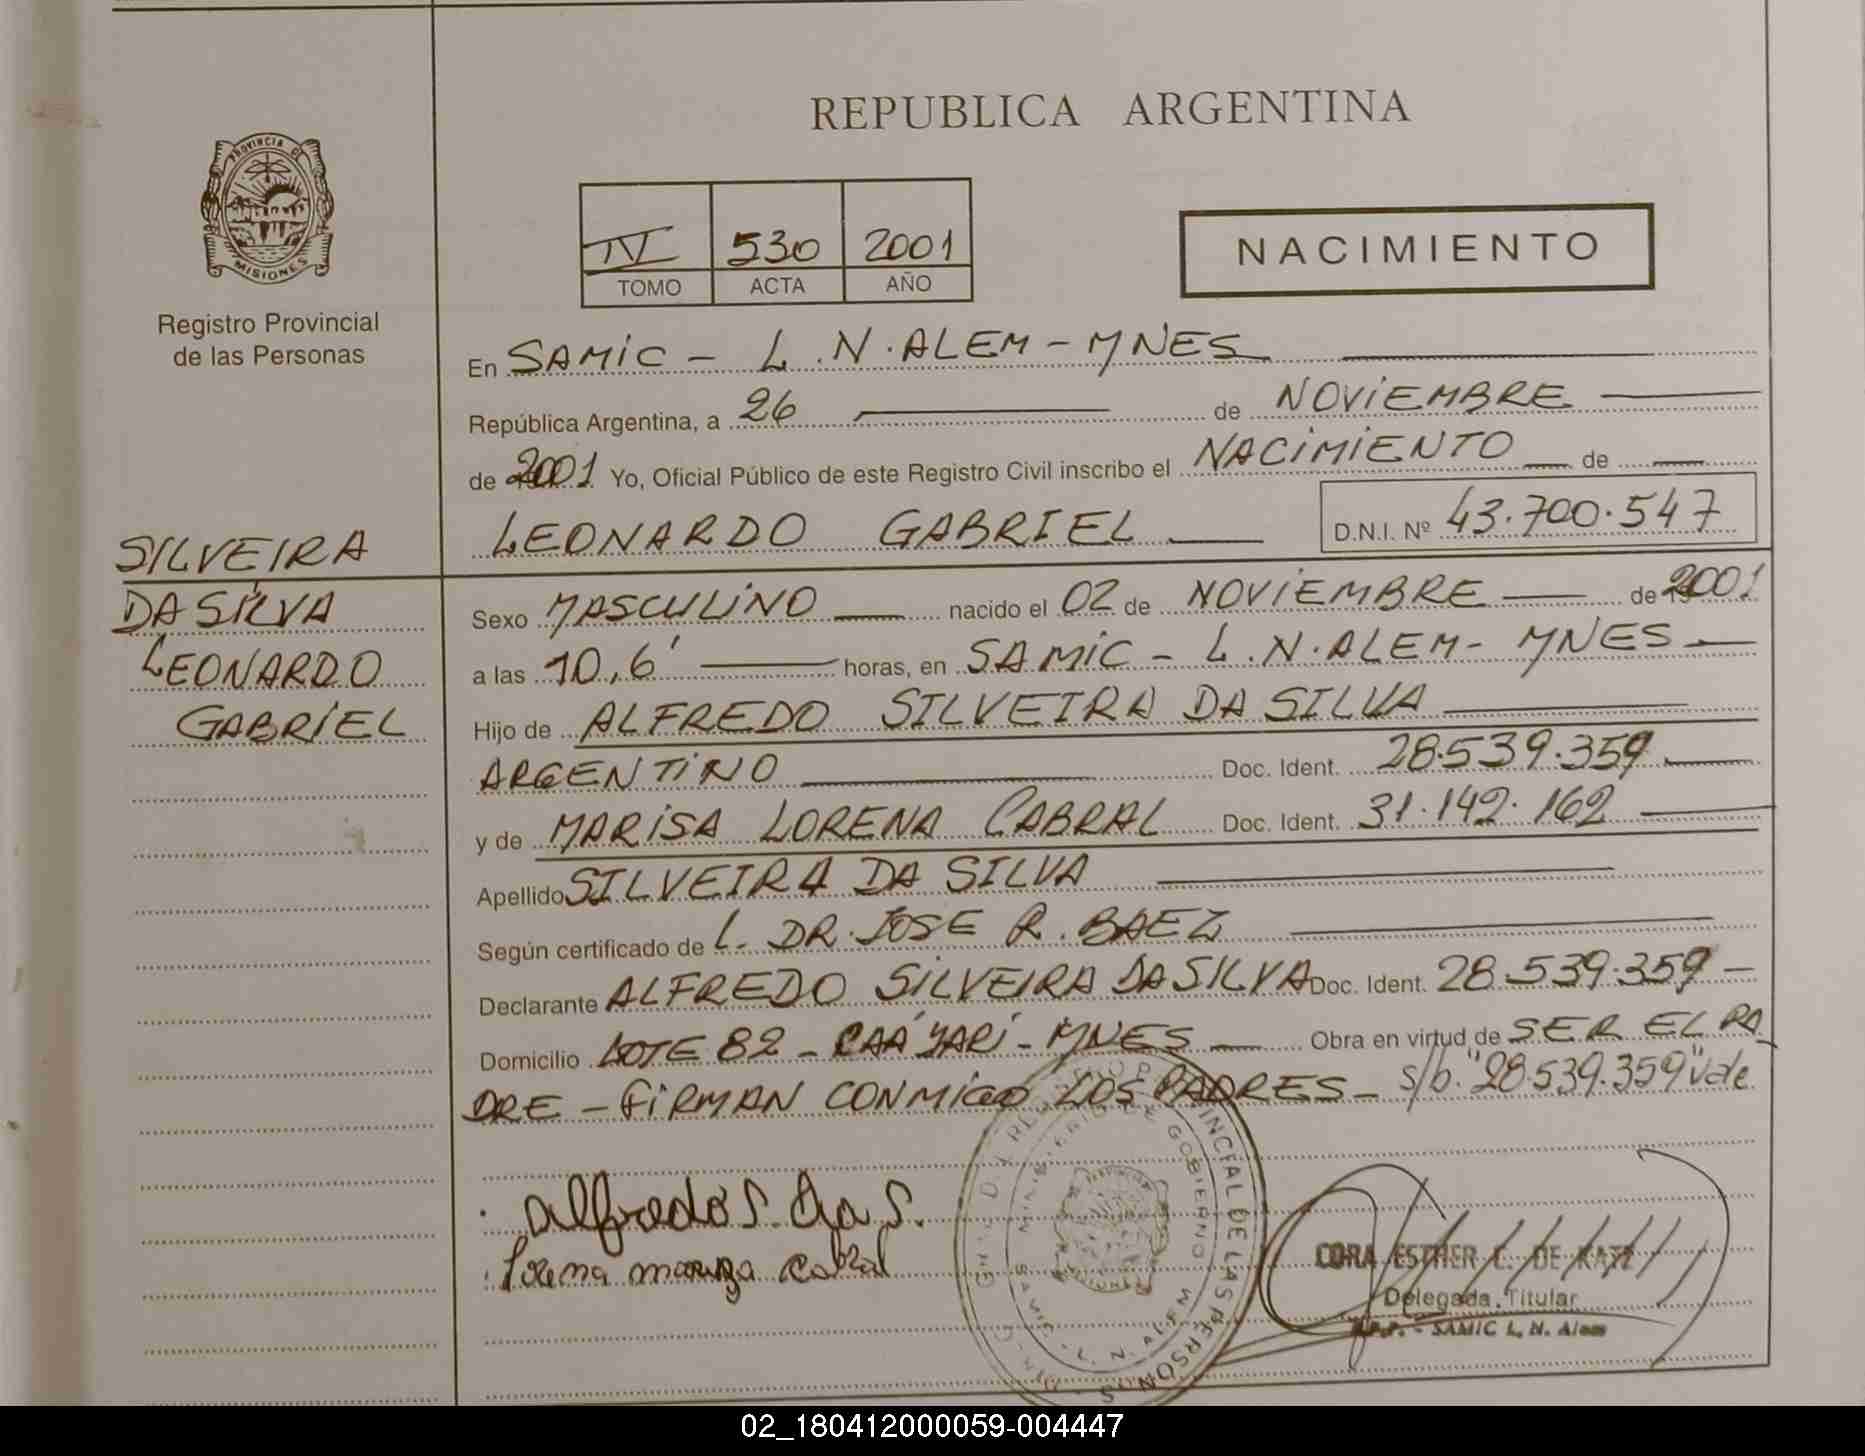 REPUBLICA ARGENTINA
PROVINCIA DE
MISIONES
Registro Provincial
de las Personas
IV 530 2001
TOMO ACTA AÑO
NACIMIENTO
En SAMIC - L.N.ALEM - MNES
República Argentina, a 26 de NOVIEMBRE
de 2001 Yo, Oficial Público de este Registro Civil inscribo el NACIMIENTO de
LEONARDO GABRIEL D.N.I. Nº 43.700.547
SILVEIRA
DA SILVA
LEONARDO
GABRIEL
Sexo MASCULINO nacido el 02 de NOVIEMBRE de 2001
a las 10,6' horas, en SAMIC - L.N.ALEM - MNES
Hijo de ALFREDO SILVEIRA DA SILVA
ARGENTINO Doc. Ident. 28.539.359
y de MARISA LORENA CABRAL Doc. Ident. 31.142.162
Apellido SILVEIRA DA SILVA
Según certificado de L. DR. JOSE R. BAEZ
Declarante ALFREDO SILVEIRA DA SILVA Doc. Ident. 28.539.359 -
Domicilio LOTE 82 - CAA YARI - MNES Obra en virtud de SER EL PA
DRE - FIRMAN CONMIGO LOS PADRES - s/b. "28.539.359" Vale
Alfredo S. da S.
Lorena Cabral
MINISTERIO DE GOBIERNO
SAMIC - L. N. ALEM
PROVINCIAL DE LAS PERSONAS
CORA ESTHER C. DE KATZ
Delegada Titular
R.P.P. - SAMIC L. N. Alem
02_180412000059-004447